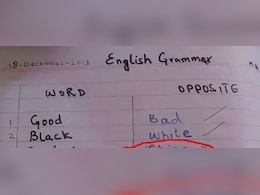 18-December-2013 English Grammar
WORD OPPOSITE
1. Good Bad
2. Black White